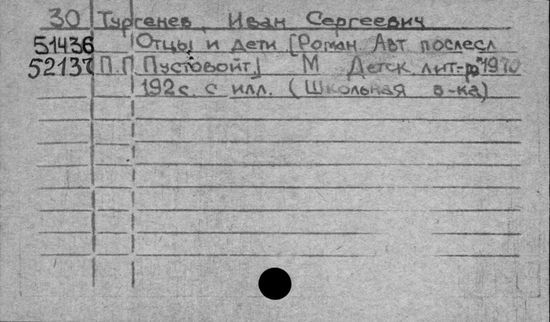 30 Тургенев, Иван Сергеевич
51436 Отцы и дети [Роман Авт послесл
52137 П.Г. Пустовойт] М Детск лит-ра 1970
192с. с илл. (Школьная б-ка)